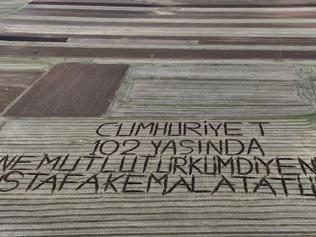 CUMHURİYET T
102 YASINDA
NE MUTLU TÜRKÜM DİYEN
STAFA KEMAL ATATÜ